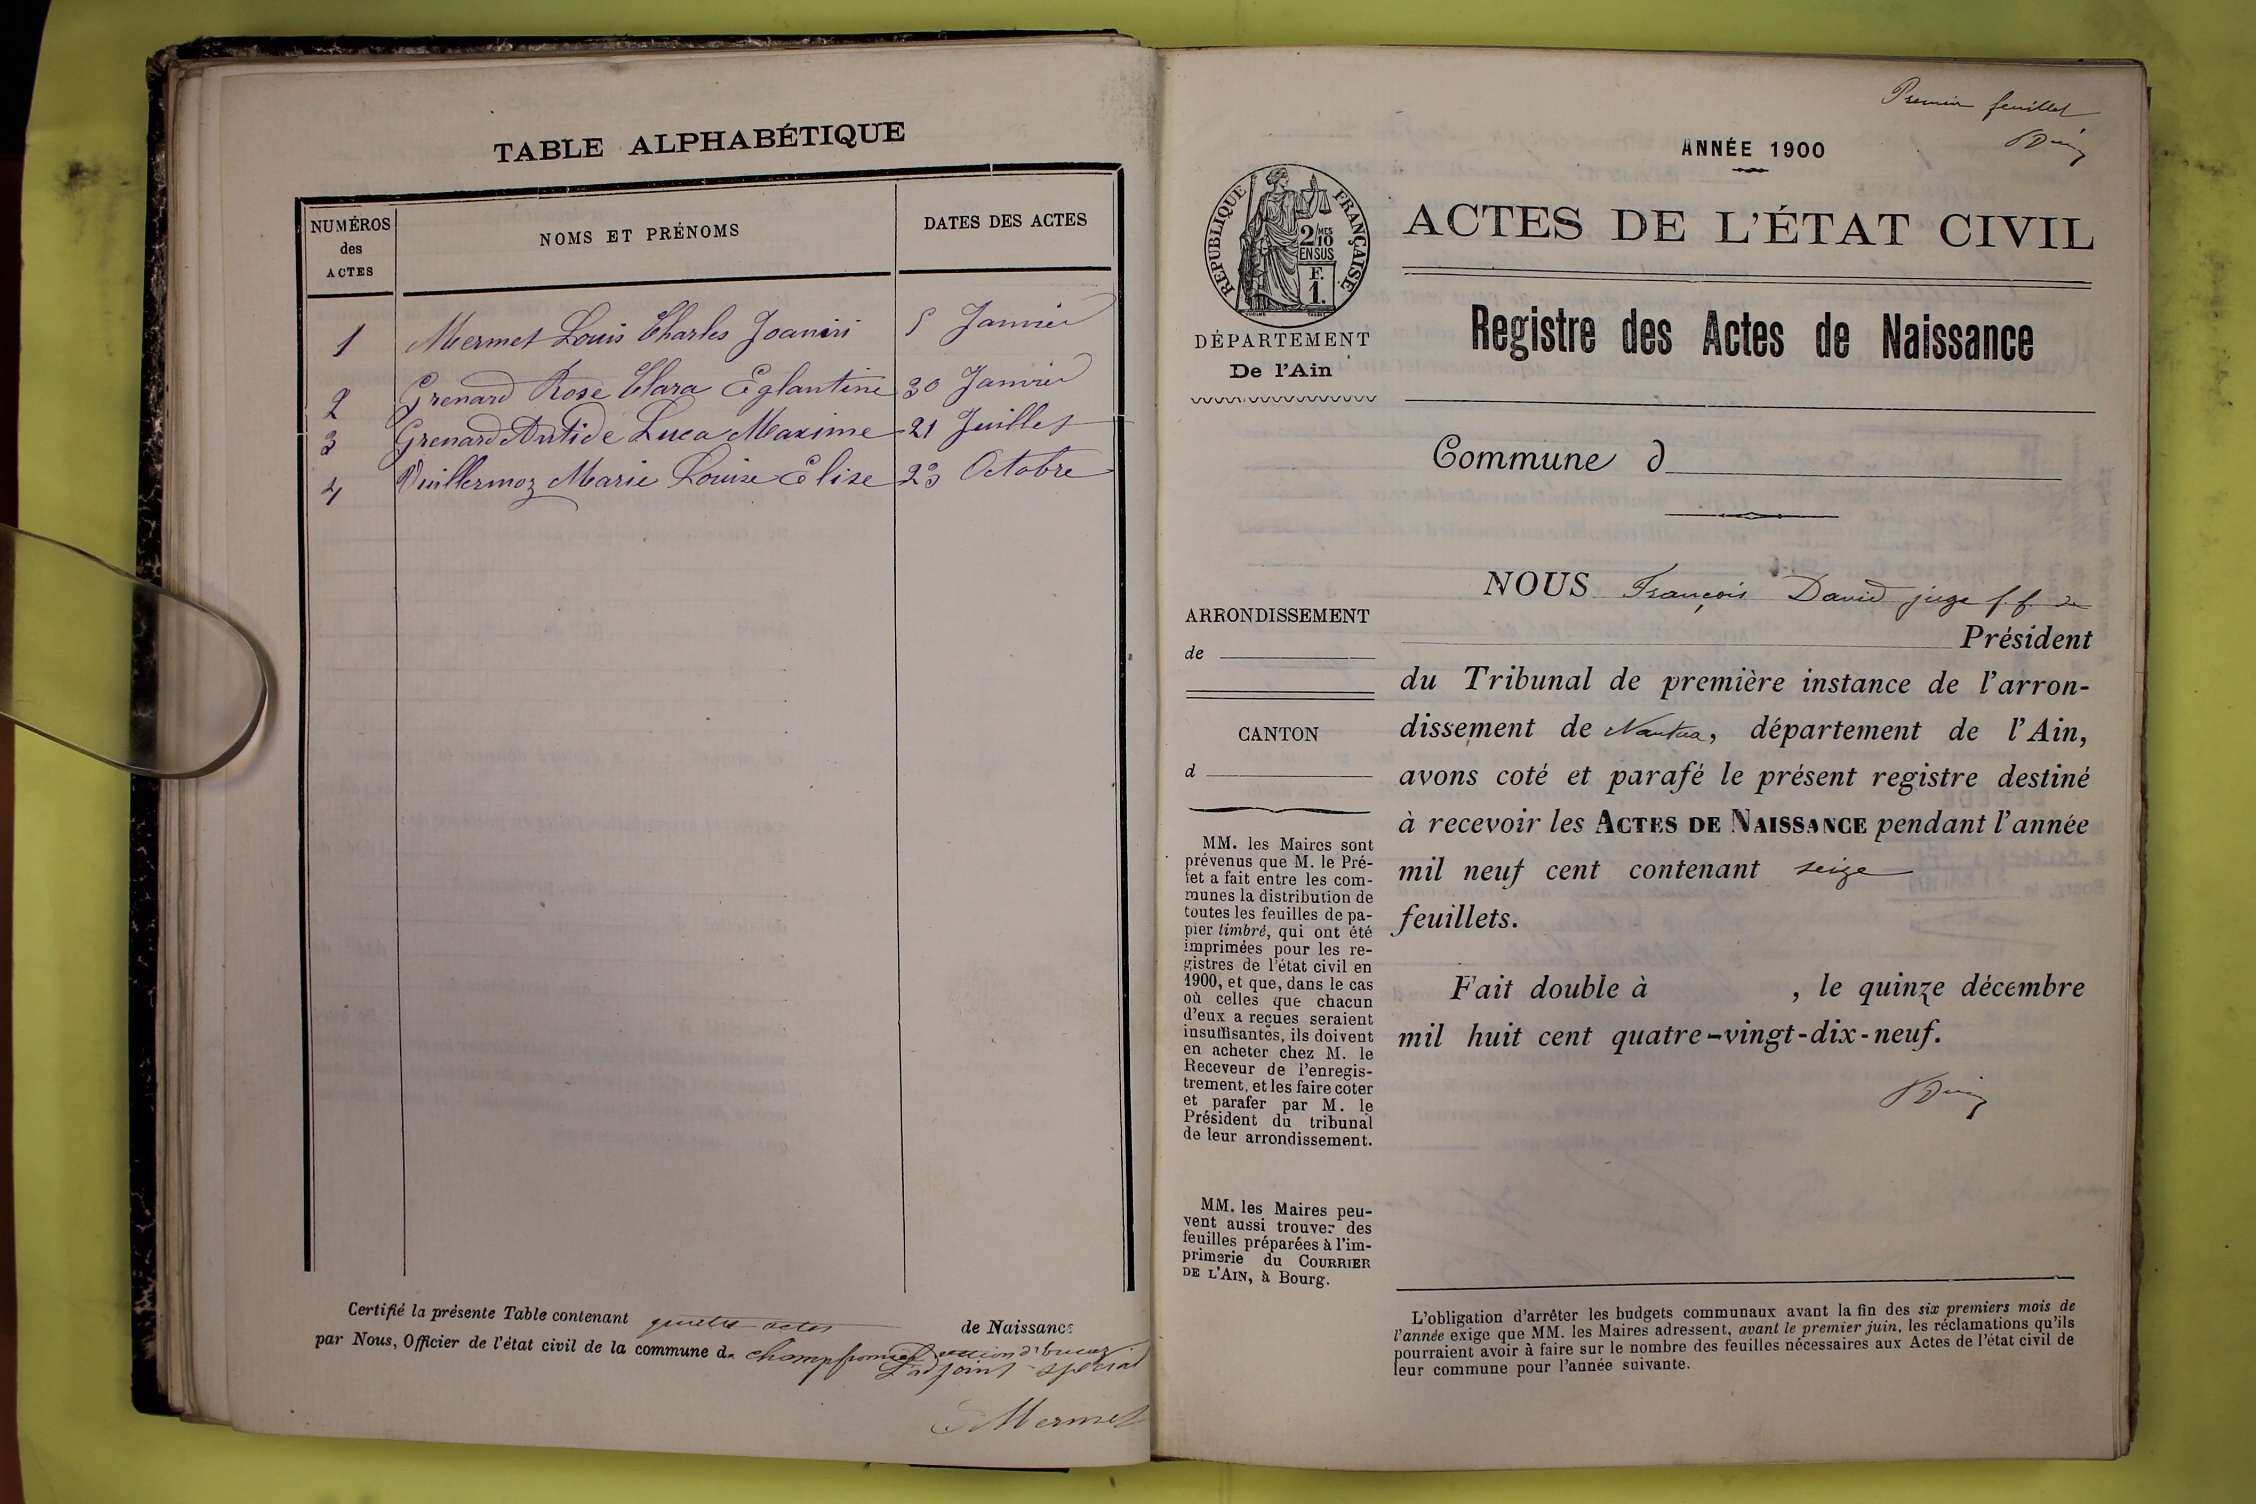 TABLE ALPHABÉTIQUE
NUMÉROS
des
ACTES
NOMS ET PRÉNOMS
DATES DES ACTES
1 Mermet Louis Charles Joanini 5 Janvier
2 Grenard Rose Clara Eglantine 30 Janvier
3 Grenard Antide Luca Maxime 21 Juillet
4 Vuillermoz Marie Louise Elise 23 Octobre
Certifié la présente Table contenant quatre actes de Naissance
par Nous, Officier de l'état civil de la commune d. Champfromier section d'
L'adjoint spécial
Mermet
Premier feuillet
ANNÉE 1900
RÉPUBLIQUE FRANÇAISE
2/10 MES
EN SUS
F.
1.
DÉPARTEMENT
De l'Ain
ACTES DE L'ÉTAT CIVIL
Registre des Actes de Naissance
Commune d
ARRONDISSEMENT
de
CANTON
d
MM. les Maires sont
prévenus que M. le Pré-
fet a fait entre les com-
munes la distribution de
toutes les feuilles de pa-
pier timbré, qui ont été
imprimées pour les re-
gistres de l'état civil en
1900, et que, dans le cas
où celles que chacun
d'eux a reçues seraient
insuffisantes, ils doivent
en acheter chez M. le
Receveur de l'enregis-
trement, et les faire coter
et parafer par M. le
Président du tribunal
de leur arrondissement.
MM. les Maires peu-
vent aussi trouver des
feuilles préparées à l'im-
primerie du COURRIER
DE L'AIN, à Bourg.
NOUS François David juge f. f. de
Président
du Tribunal de première instance de l'arron-
dissement de Nantua, département de l'Ain,
avons coté et parafé le présent registre destiné
à recevoir les ACTES DE NAISSANCE pendant l'année
mil neuf cent contenant seize
feuillets.
Fait double à , le quinze décembre
mil huit cent quatre-vingt-dix-neuf.
L'obligation d'arrêter les budgets communaux avant la fin des six premiers mois de
l'année exige que MM. les Maires adressent, avant le premier juin, les réclamations qu'ils
pourraient avoir à faire sur le nombre des feuilles nécessaires aux Actes de l'état civil de
leur commune pour l'année suivante.